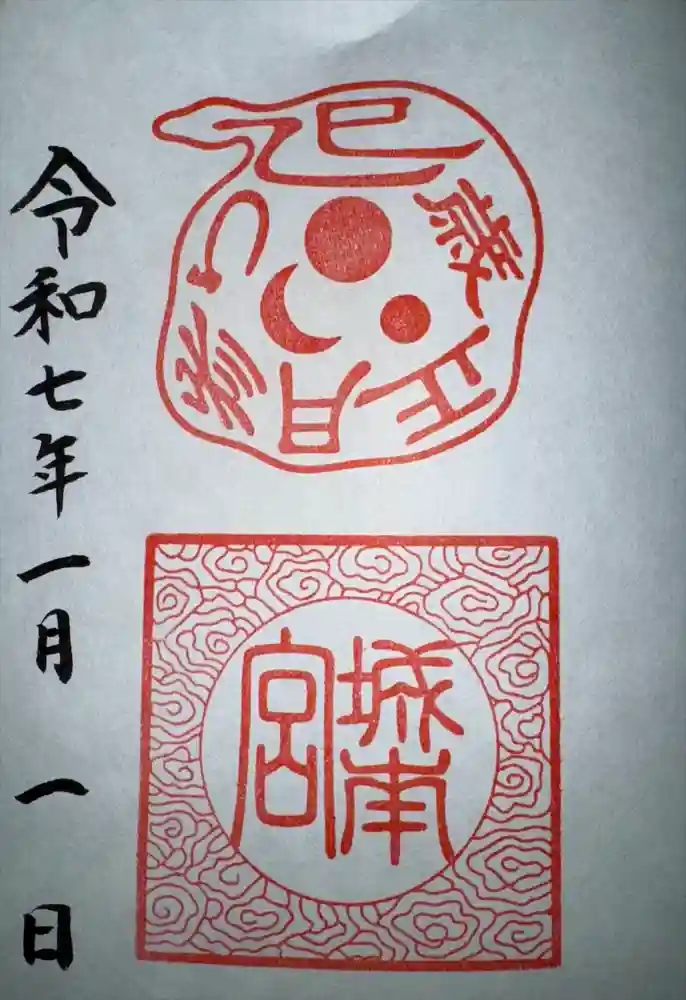 巳
歳
正
月
城南
宮
令和七年一月一日